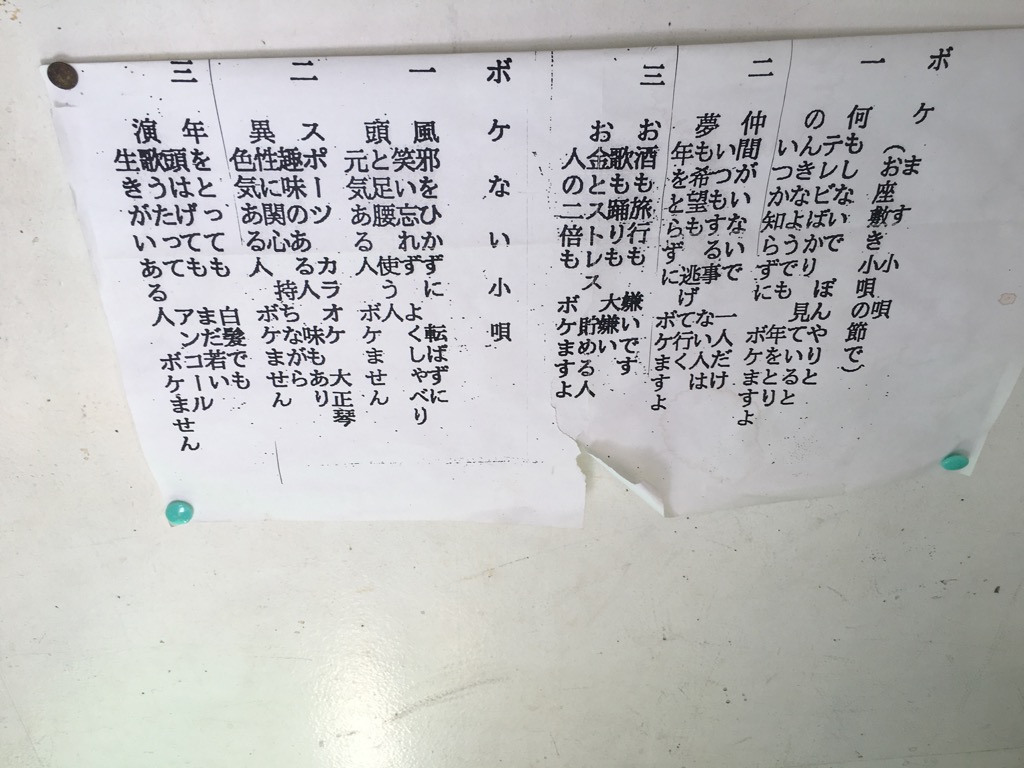 ボケます小唄
(お座敷き小唄の節で)
一
何もしないで ぼんやりと
テレビばかり 見ていると
のんきなようでも 年をとり
いつか知らずに ボケますよ
二
仲間がいないで 一人だけ
いつもする事 ない人は
夢も希望も 逃げて行く
年をとらずに ボケますよ
三
お酒も旅行も 嫌いです
歌も踊りも 大嫌い
お金とストレス 貯める人
人の二倍も ボケますよ
ボケない小唄
一
風邪をひかずに 転ばずに
笑い忘れず よくしゃべり
頭と足腰 使う人
元気ある人 ボケません
二
スポーツ カラオケ 大正琴
趣味のある人 味もあり
異性に関心 持ちながら
色気ある人 ボケません
三
年をとっても 白髪でも
頭はげても まだ若い
演歌うたって アンコール
生きがいある人 ボケません